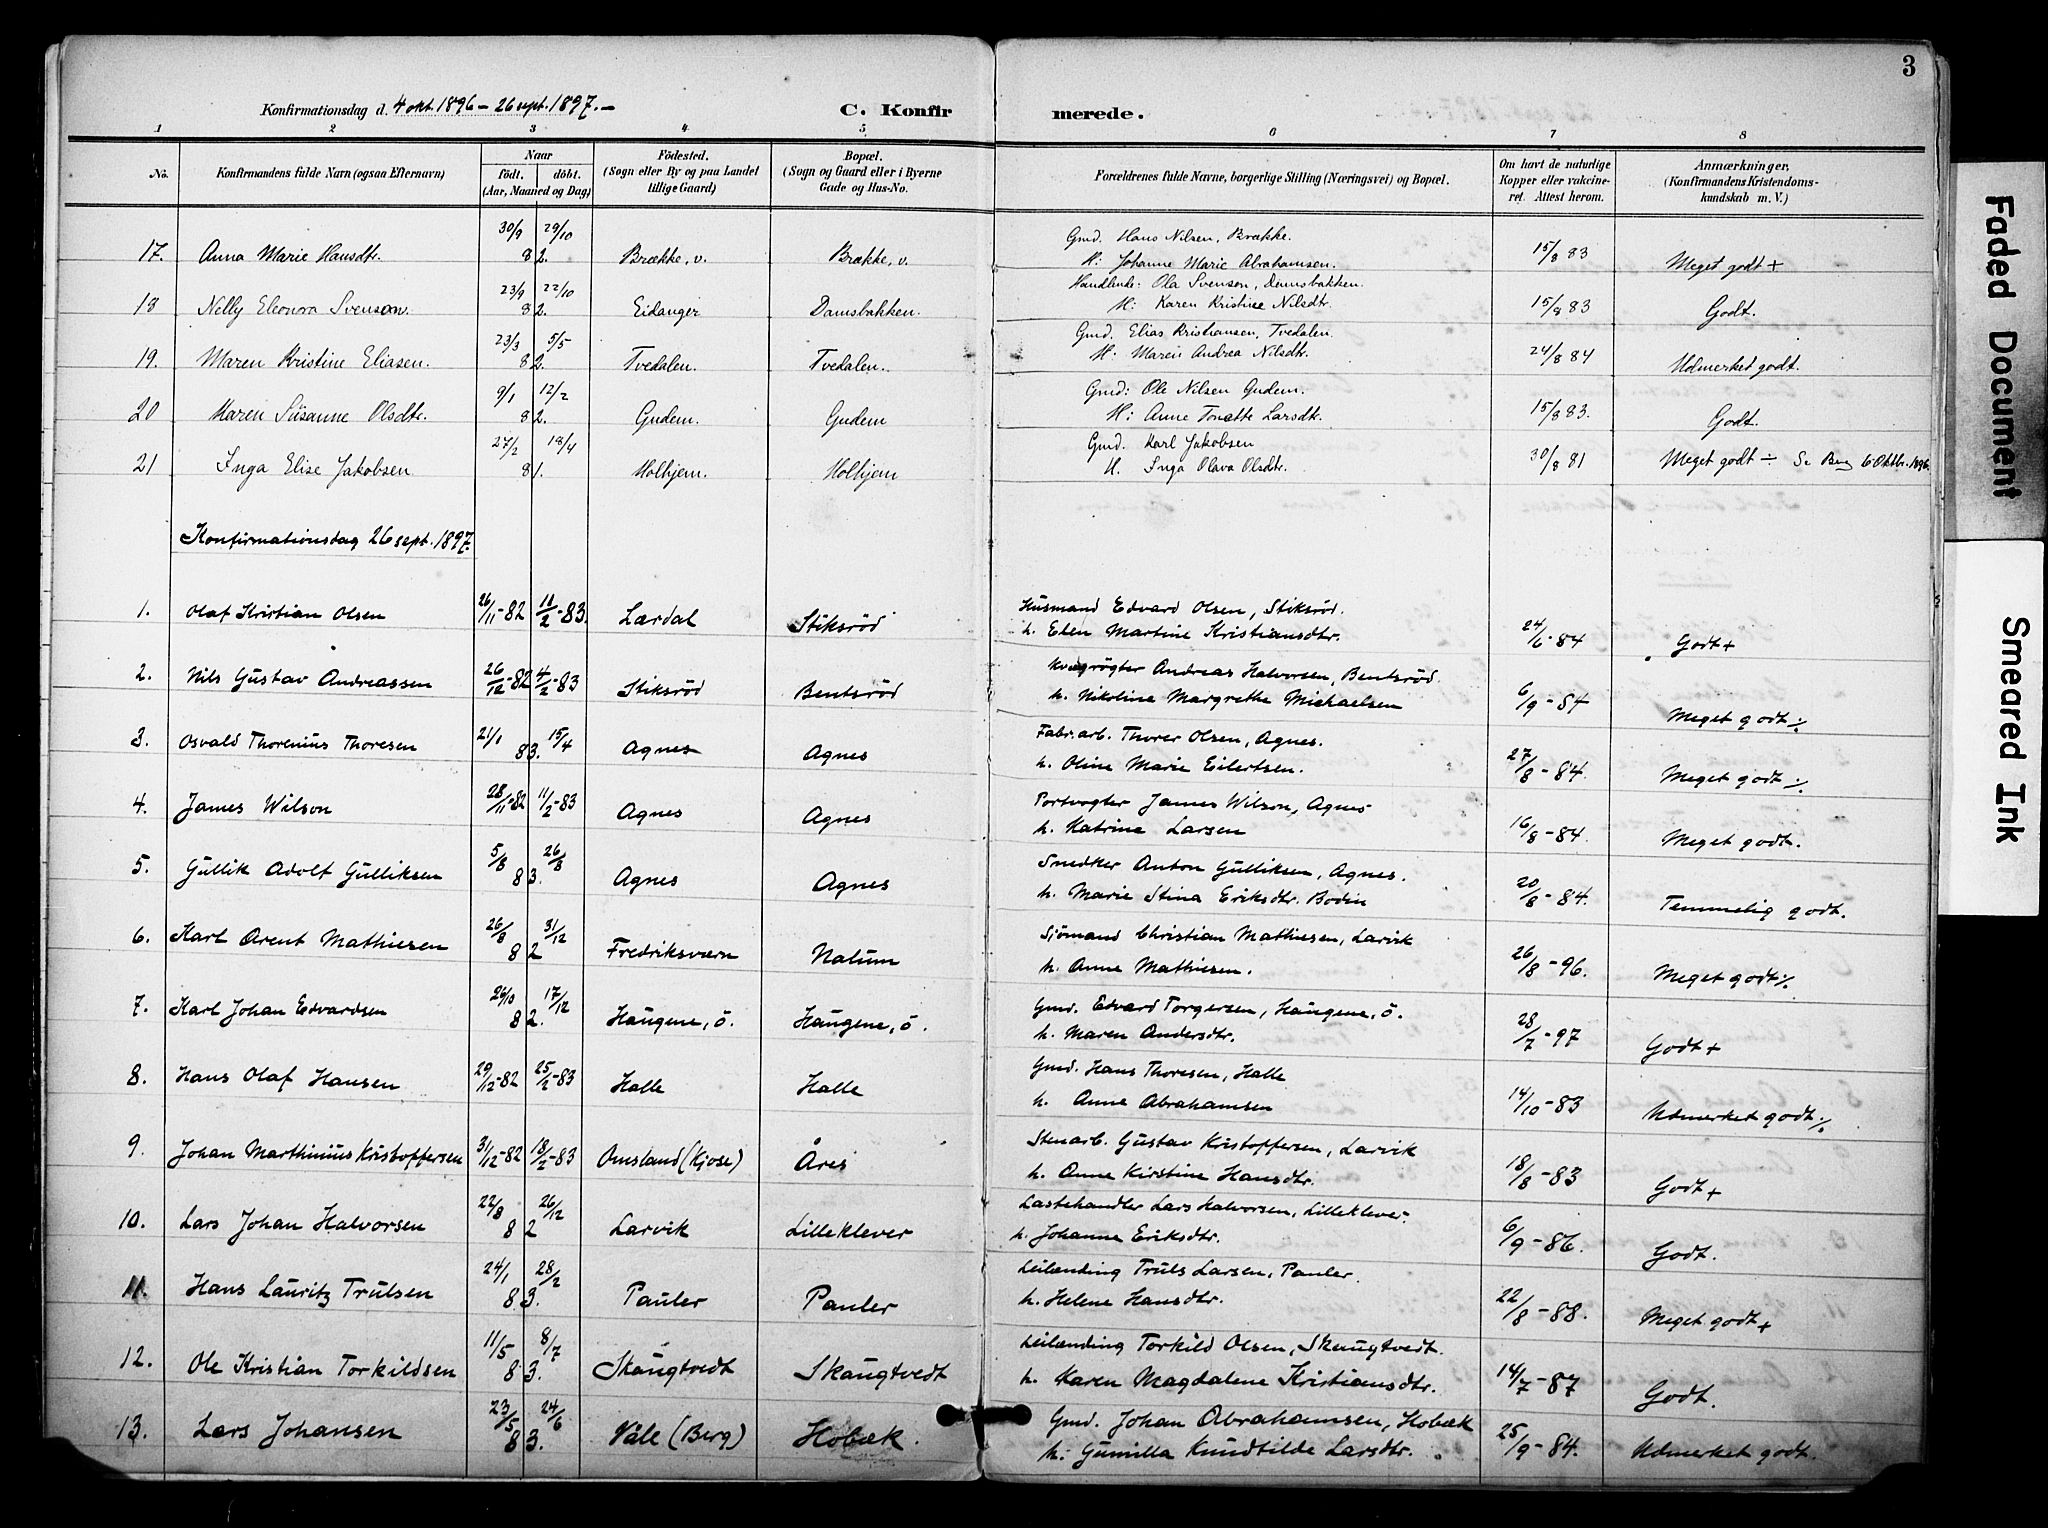 3
Konfirmationsdag d. 4 okt. 1896 – 26 sept. 1897. –
C. Konfirmerede.
1 2 3 4 5 6 7 8
No.
Konfirmandens fulde Navn (ogsaa Efternavn)
Naar
födt. döbt.
(Aar, Maaned og Dag)
Födested.
(Sogn eller By og paa Landet
tillige Gaard)
Bopæl.
(Sogn og Gaard eller i Byerne
Gade og Hus-No.
Forældrenes fulde Navne, borgerlige Stilling (Næringsvei) og Bopæl.
Om havt de naturlige
Kopper eller vakcine-
ret. Attest herom.
Anmærkninger,
(Konfirmandens Kristendoms-
kundskab m. V.)
30/9 29/10 Gmd. Hans Nilsen, Brække.
17. Anna Marie Hansdtr. 82. Brække, v. Brække, v. H: Johanne Marie Abrahamsen. 15/8 83 Meget godt +
23/9 22/10 Handlende: Ola Svenson, Damsbakken.
18 Nelly Eleonora Svenson. 82. Eidanger Damsbakken. H: Karen Kristine Nilsdtr. 15/8 83 Godt.
23/3 5/5 Gmd. Elias Kristiansen, Tvedalen.
19. Maren Kristine Eliasen. 82. Tvedalen. Tvedalen. H: Maren Andrea Nilsdtr. 24/8 84 Udmerket godt.
9/1 12/2 Gmd: Ole Nilsen Gudem.
20 Maren Süsanne Olsdtr. 82. Gudem. Gudem H: Anne Tonette Larsdtr. 15/8 83. Godt.
27/2 18/4 Gmd. Karl Jakobsen
21 Inga Elise Jakobsen 81. Holhjem. Holhjem H. Inga Olava Olsdtr. 30/8 81 Meget godt ÷ Se Brev 6 Oktbr. 1896.
Konfirmationsdag 26 sept. 1897.
1. Olaf Kristian Olsen 26/11-82 11/2-83. Lærdal Stiksröd Hüsmand Edvard Olsen, Stiksröd.
h. Elen Martine Kristiansdtr. 24/6-84 Godt +
2. Nils Güstav Andreassen 26/12-82 4/2-83 Stiksröd Bentsröd Kvægrögter Andreas Halvorsen, Bentsröd.
h. Nikoline Margrethe Michaelsen 6/9-84 Meget godt ÷
3. Osvald Thorenius Thoresen 21/1 15/4 83. Agnes Agnes Fabr.arb. Thorer Olsen, Agnes.
h. Oline Marie Eilertsen. 27/8-84. Meget godt ÷
4. James Wilson 28/11-82 11/2-83 Agnes Agnes Portvogter James Wilson, Agnes
h. Katrine Larsen 16/8-84. Meget godt.
5. Güllik Adolf Gülliksen 5/8 26/8 83. Agnes Agnes Snedker Anton Gülliksen, Agnes.
h. Marie Stina Eriksdtr. Bodin 20/8-84. Temmelig godt.
6. Karl Arent Mathiesen 26/8 31/12 82 Fredriksværn Nalum Sjömand Christian Mathiesen, Larvik
h. Anne Mathiesen. 26/8-96. Meget godt ÷
7. Karl Johan Edvardsen 26/10 17/12 82. Haügene, ö. Haügene, ö. Gmd. Edvard Torgersen, Haügene, ö.
h. Maren Andersdtr. 28/7-97 Godt +
8. Hans Olaf Hansen 29/12-82 25/2-83 Halle Halle Gmd. Hans Thoresen, Halle
h. Anne Abrahamsen 14/10-83 Udmerket godt ÷
9. Johan Marthinius Kristoffersen 31/12-82 18/2-83 Omsland (Kjose) Åres Stenarb. Güstav Kristoffersen, Larvik
h. Anne Kirstine Hansdtr. 18/8-83 Godt +
10. Lars Johan Halvorsen 22/8 26/12 82 Larvik Lilleklever Lastehandler Lars Halvorsen, Lilleklever.
h. Johanne Eriksdtr. 6/9-86. Godt.
11. Hans Laüritz Trülsen 24/1 28/2 83. Paüler Pauler Leilending Trüls Larsen, Pauler.
h. Helene Hansdtr. 22/8-88. Meget godt +
12. Ole Kristian Torkildsen 11/5 8/7 83. Skaügtvedt Skaügtvedt Leilending Torkild Olsen, Skaügtvedt.
h. Karen Magdalene Kristiansdtr. 14/7-87 Godt.
13. Lars Johansen 23/5 24/6 83. Våle (Berg) Hobæk. Gmd. Johan Abrahamsen, Hobæk
h: Gunilla Knudtilde Larsdtr. 25/9-84. Udmerket godt.
Faded Document
Smeared Ink